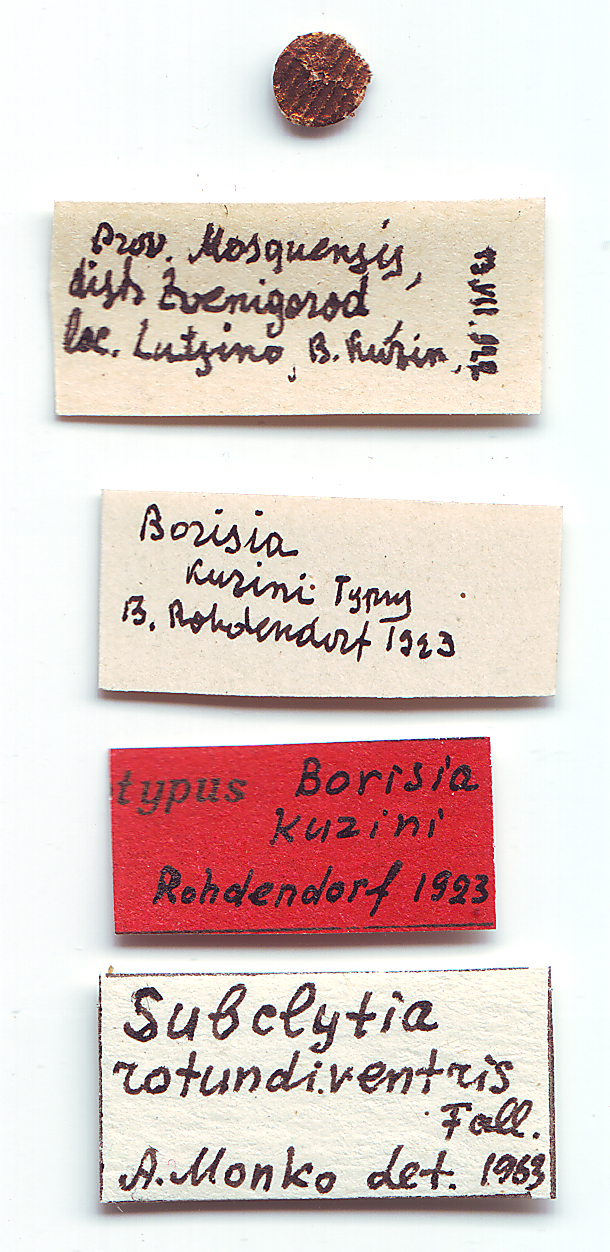 Prov. Mosquensis,
distr. Zvenigorod
loc. Lutzino, B. Kuzin.
Borisia
Kuzini Typus
B. Rohdendorf 1923
typus Borisia
kuzini
Rohdendorf 1923
Subclytia
rotundiventris
Fall.
A. Monko det. 1963